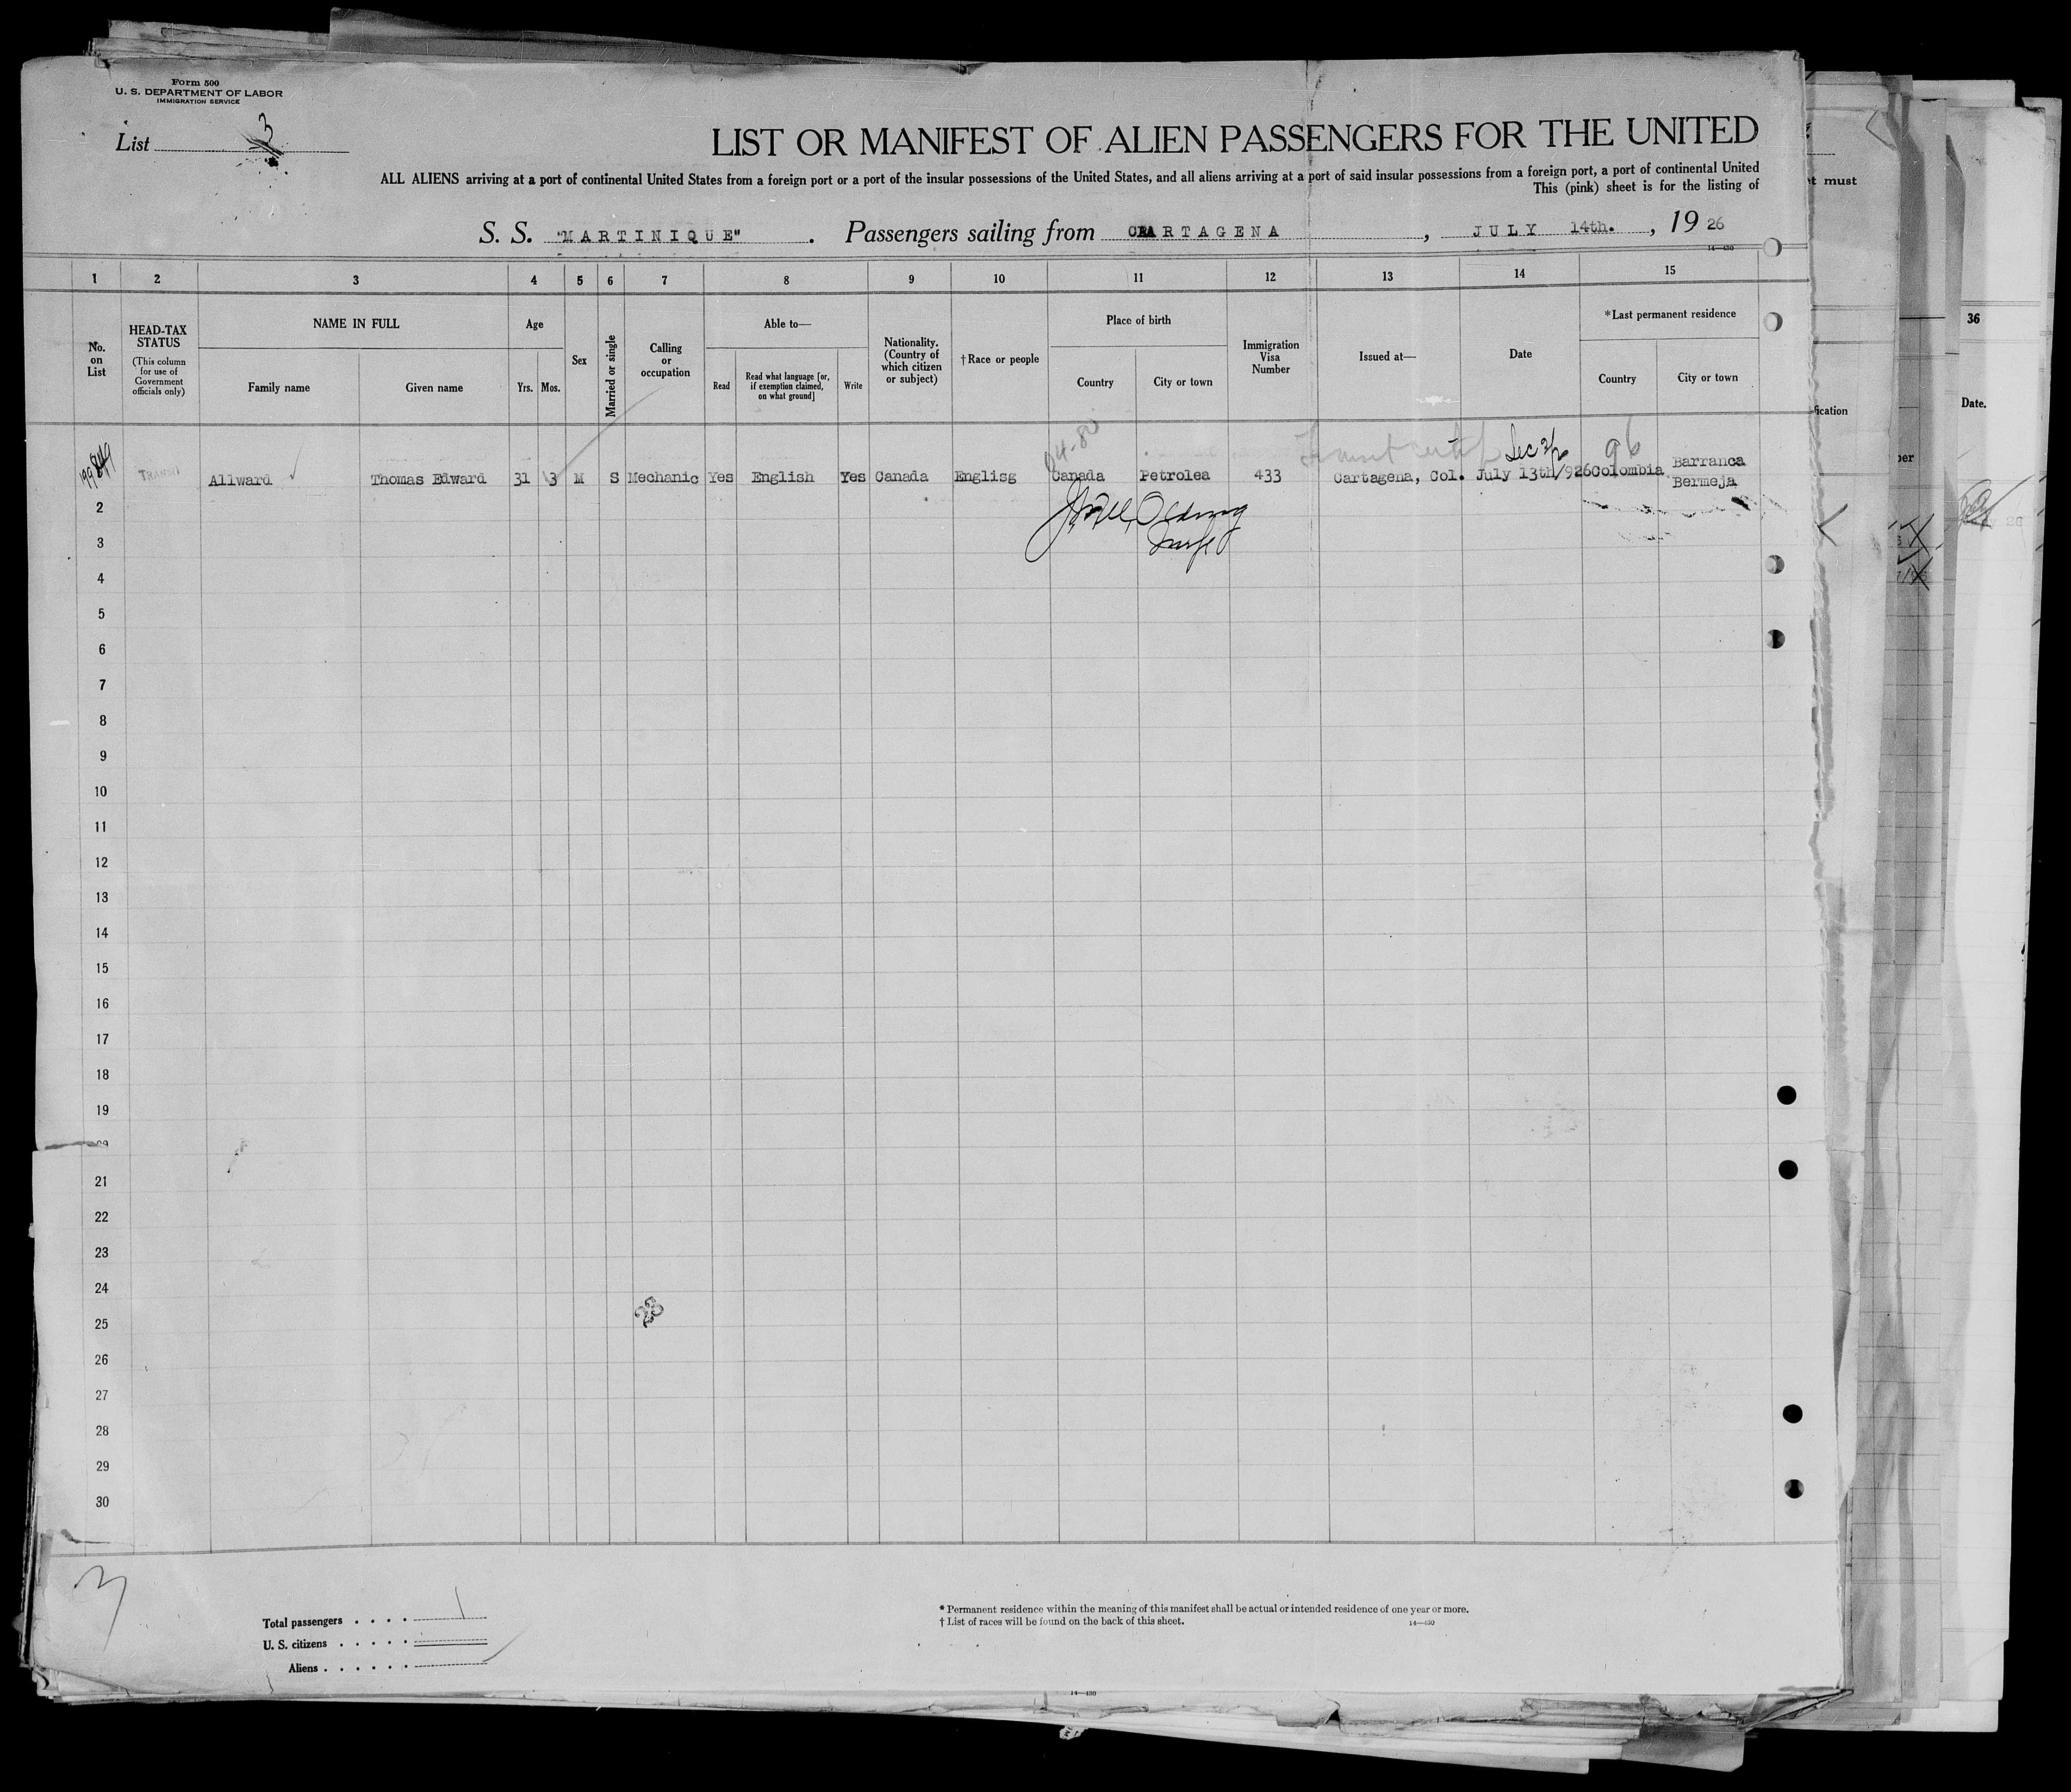 Form 500
U. S. DEPARTMENT OF LABOR
IMMIGRATION SERVICE
List 3
LIST OR MANIFEST OF ALIEN PASSENGERS FOR THE UNITED
ALL ALIENS arriving at a port of continental United States from a foreign port or a port of the insular possessions of the United States, and all aliens arriving at a port of said insular possessions from a foreign port, a port of continental United
This (pink) sheet is for the listing of
S. S. "MARTINIQUE" . Passengers sailing from CARTAGENA , JULY 14th. , 19 26
14—430
1 2 3 4 5 6 7 8 9 10 11 12 13 14 15
No. on List
HEAD-TAX STATUS
(This column for use of Government officials only)
NAME IN FULL
Family name Given name
Age
Yrs. Mos.
Sex
Married or single
Calling or occupation
Able to—
Read
Read what language [or, if exemption claimed, on what ground]
Write
Nationality. (Country of which citizen or subject)
†Race or people
Place of birth
Country City or town
Immigration Visa Number
Issued at—
Date
*Last permanent residence
Country City or town
Sec 3/
96
TRANSIT Allward Thomas Edward 31 3 M S Mechanic Yes English Yes Canada Englisg Canada Petrolea 433 Cartagena, Col. July 13th/926 Colombia Barranca Bermeja
2
3
4
5
6
7
8
9
10
11
12
13
14
15
16
17
18
19
21
22
23
24
25
26
27
28
29
30
3
Total passengers . . . . 1
U. S. citizens . . . . .
Aliens . . . . . .
* Permanent residence within the meaning of this manifest shall be actual or intended residence of one year or more.
† List of races will be found on the back of this sheet.
14—430
14—430
must
36
Date.